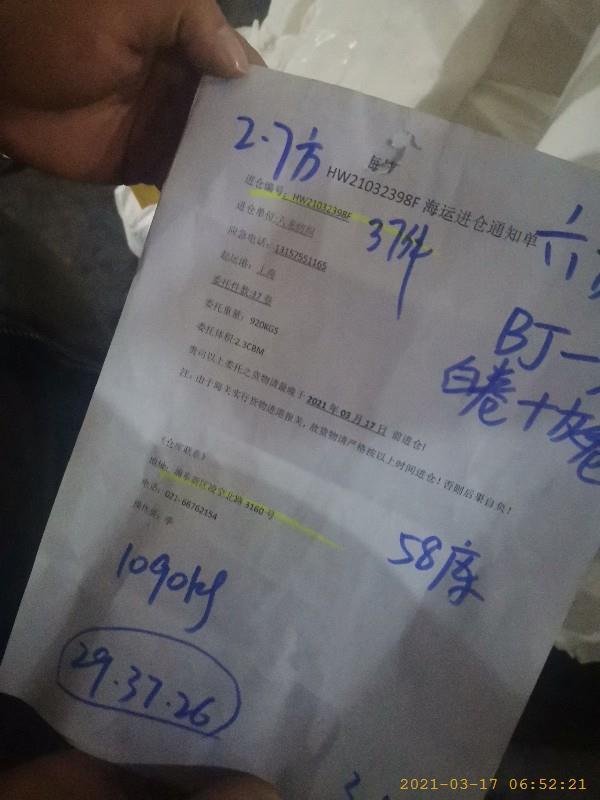 2.7方
HW21032398F 海运进仓通知单
进仓编号: HW21032398F
37件
六
进仓单位:
应急电话: 13157551165
起运港: 上海
BJ一
委托件数:37卷
白卷+灰卷
委托重量: 920KGS
委托体积:2.3CBM
贵司以上委托之货物请最晚于 2021年 03月 17日 前进仓!
注: 由于海关实行货物进港报关, 故货物请严格按以上时间进仓! 否则后果自负!
《仓库联系》
地址: 浦东新区凌空北路3160号
电话: 021-66762154
58库
操作员: 李
1090kg
29.37.26
2021-03-17 06:52:21